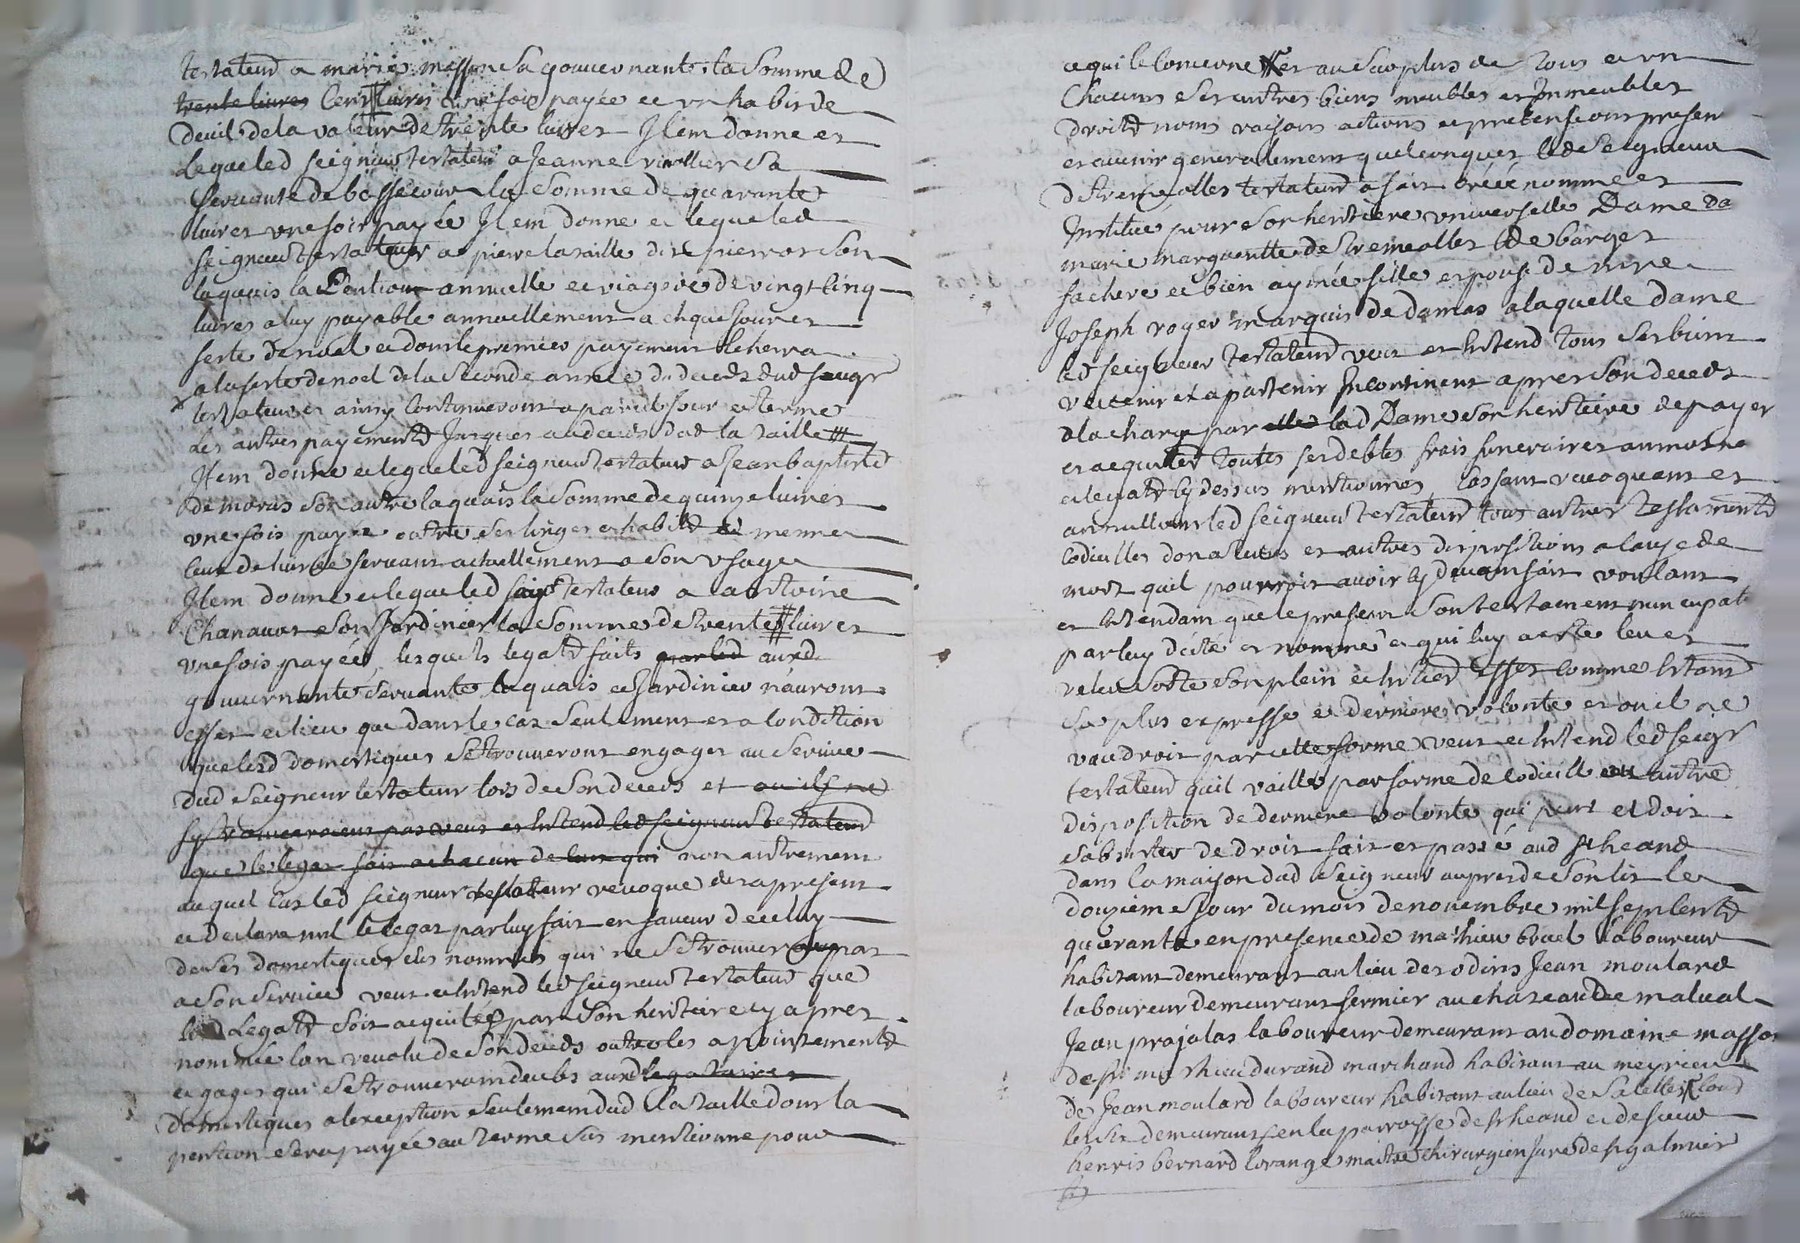 testateur a marie messon sa gouvernante la somme de
trente livres Cent livres une fois payée et un habis de
deuil de la valeur de trente livres Item donne et
legue led seigneur testateur a Jeanne viallier sa
servante de bassecour la somme de quarante
livres une fois payée Item donne et legue led
seigneur testateur a pierre lataille dit pierrot son
laquais la Pention annuelle et viagere de vingt cinq
livres a luy payable annuellement a chque jour et
feste de noel et dont le premier payement echerra
a la feste de noel de la seconde année du deceds dud seigr
testateur et ainsy continueront a pareil jour et terme
les autres payements jusques au deceds dud la taille
Item donne et legue led seigneur testateur a Jean baptiste
demaras son autre laquais la somme de quinze livres
une fois payée outre ses linges et habits et mesme
ceux de livrée servant actuellement a son usage
Item donne et legue led seigr testateur a antoine
Chanavat son Jardinier la somme de trente livres
une fois payée, lesquels legats faits par led auxd
gouvernante servante laquais et Jardinier n'auront
effet et lieu que dans le cas seulement et a condition
que lesd domestiques se trouveront engages au service
dud seigneur testateur lors de son deceds et ou ils ne
sy trouveroient pas veut et entend led seigneur testateur
que le legat fait a chacun de ceux qui non autrement
auquel cas led seigneur testateur revoque des a present
et declare nul le legat par luy fait en faveur de celuy
de ses domestiques cy nommés qui ne se trouvera pas
a son service veut et entend led seigneur testateur que
lesd Legats soit acquités par son heritiere cy apres
nommée lan revolu de son deceds outre les apointements
et gages qui se trouveront deubs auxd legataires
domestiques a lexception seulement dud la taille dont la
pention sera payée au terme sus mentionné pour
ce qui le concerne et au surplus de tous et un
Chacuns ses autres biens meubles et Immeubles
droits noms raisons actions et pretensions presen
et avenir generalement quelconques led Seigneur
de tremeolles testateur a fait créé nommé et
Institué pour son heritiere universelle Dame Da
marie margueritte de tremeolles de barges
sa chere et bien aymée fille epouse de mre
Joseph roger marquis de damas a laquelle dame
led seigneur testateur veut et entend tous ses biens
revenir et apartenir Incontinent apres son deceds
a la charge par elle lad Dame son heritiere de payer
et acquiter toutes ses debtes frais funeraires aumosne
et legats cy dessus mentionnés Cassant revoquant et
annullant led seigneur testateur tous autres testaments
codicilles donations et autres dispositions a cause de
mort quil pourroit avoir cy devant fait voulant
et entendant que le present son testament nuncupatif
par luy dicté et nommé et qui luy a esté leu et
releu sorte son plein et entier effet comme estant
sa plus expresse et derniere volonté et ou il ne
vaudroit par cette forme veut et entend led seigr
testateur quil vaille par forme de codicille ou autre
disposition de derniere volonté qui peut et doit
subsister de droit fait et passé aud st heand
dans la mayson dud seigneur aupres de son lit le
douzieme jour du mois de novembre mil sept cents
quarante en presence de mathieu bruel laboureur
habitant demeurant au lieu des odins Jean moulard
laboureur demeurant fermier au chateau de malval
Jean prajalas laboureur demeurant au domaine masson
de sr mathieu durand marchand habitant au meyrieu
de Jean moulard laboureur habitant au lieu de Salettes tous
les six demeurants en la parroisse de st heand et de sieur
henris bernard lorange maitre chirurgien juré de st galmier